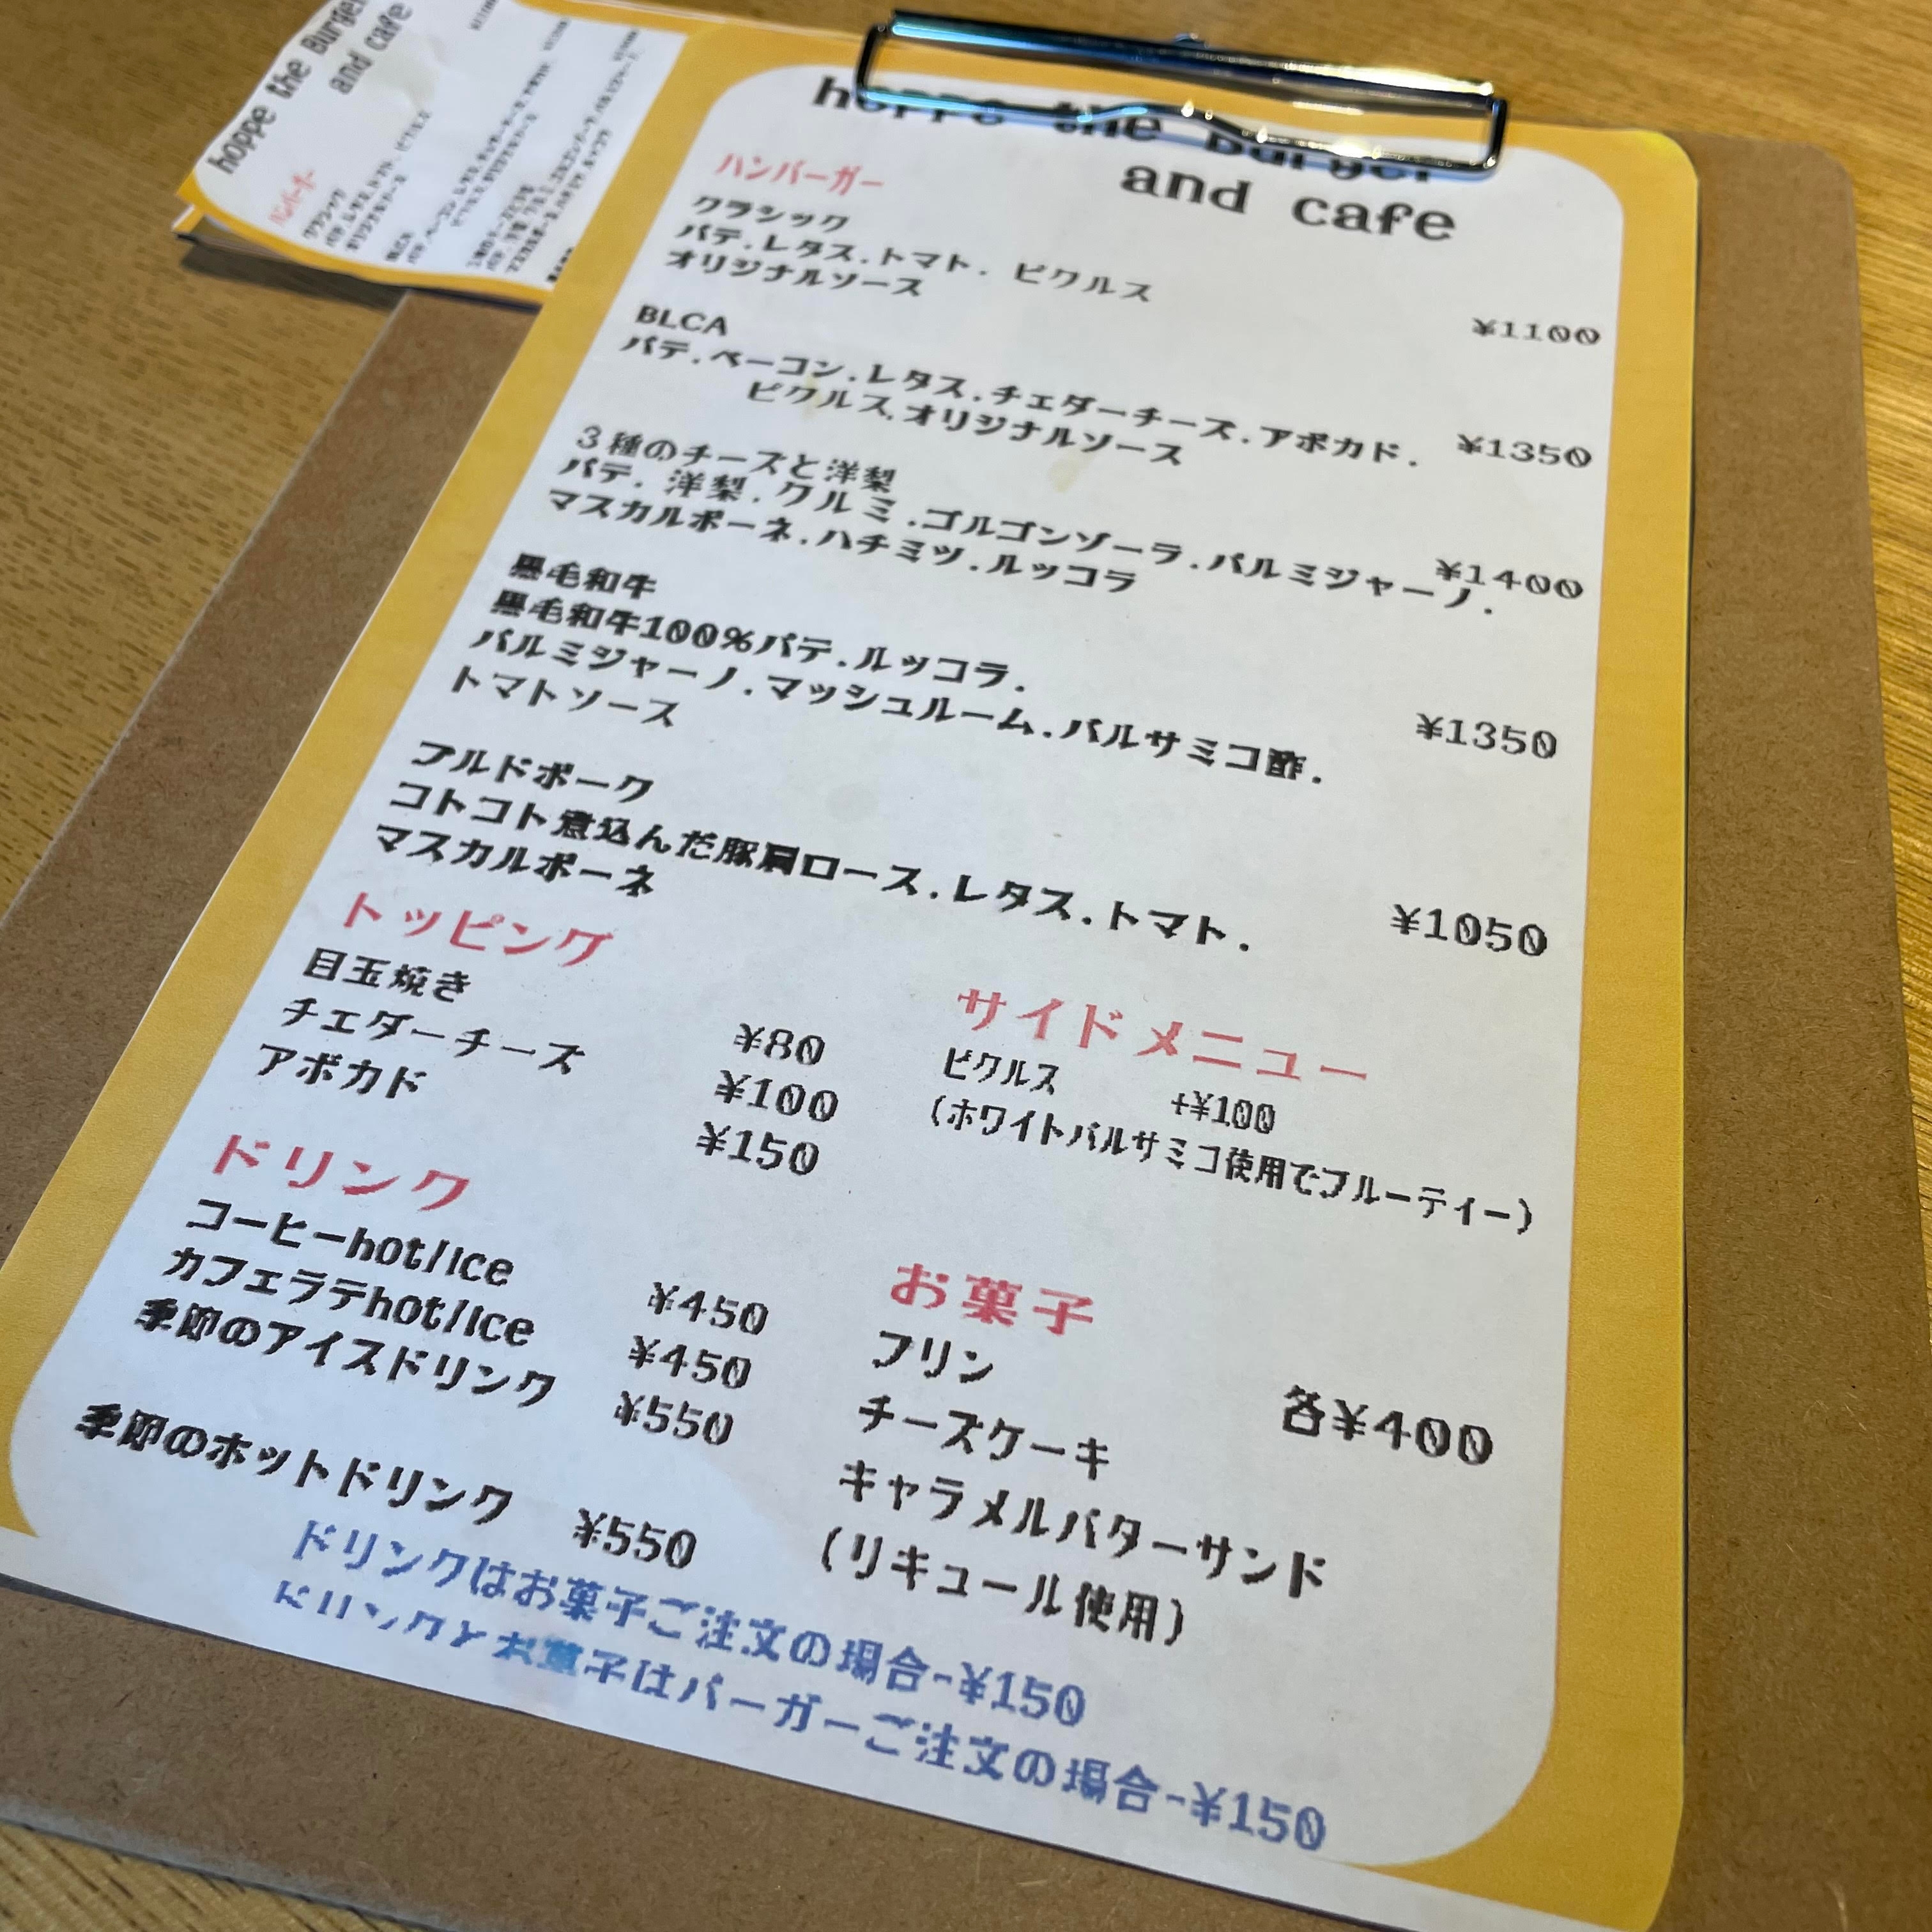 hoppe the Burger
and cafe
hoppe the Burger
and cafe
ハンバーガー
クラシック
パテ.レタス.トマト. ピクルス
オリジナルソース
¥1100
BLCA
パテ.ベーコン.レタス.チェダーチーズ.アボカド.
ピクルス.オリジナルソース
¥1350
3種のチーズと洋梨
パテ. 洋梨.クルミ.ゴルゴンゾーラ.パルミジャーノ.
マスカルポーネ.ハチミツ.ルッコラ
¥1400
黒毛和牛
黒毛和牛100%パテ.ルッコラ.
パルミジャーノ.マッシュルーム.バルサミコ酢.
トマトソース
¥1350
プルドポーク
コトコト煮込んだ豚肩ロース.レタス.トマト.
マスカルポーネ
¥1050
トッピング
目玉焼き ¥80
チェダーチーズ ¥100
アボカド ¥150
サイドメニュー
ピクルス +¥100
(ホワイトバルサミコ使用でフルーティー)
ドリンク
コーヒーhot/Ice ¥450
カフェラテhot/Ice ¥450
季節のアイスドリンク ¥550
季節のホットドリンク ¥550
お菓子
プリン
各¥400
チーズケーキ
キャラメルバターサンド
(リキュール使用)
ドリンクはお菓子ご注文の場合-¥150
ドリンクとお菓子はバーガーご注文の場合-¥150